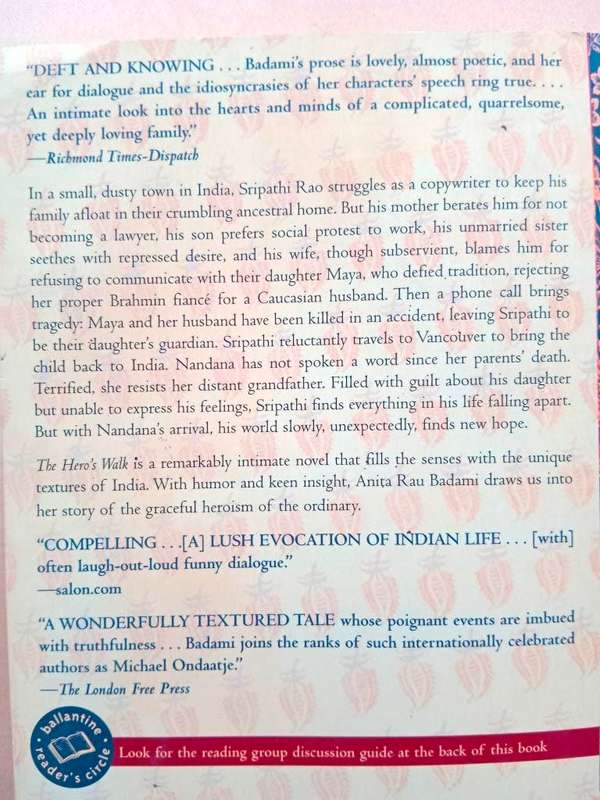 “DEFT AND KNOWING . . . Badami’s prose is lovely, almost poetic, and her
ear for dialogue and the idiosyncrasies of her characters’ speech ring true. . . .
An intimate look into the hearts and minds of a complicated, quarrelsome,
yet deeply loving family.”
—Richmond Times-Dispatch
In a small, dusty town in India, Sripathi Rao struggles as a copywriter to keep his
family afloat in their crumbling ancestral home. But his mother berates him for not
becoming a lawyer, his son prefers social protest to work, his unmarried sister
seethes with repressed desire, and his wife, though subservient, blames him for
refusing to communicate with their daughter Maya, who defied tradition, rejecting
her proper Brahmin fiancé for a Caucasian husband. Then a phone call brings
tragedy: Maya and her husband have been killed in an accident, leaving Sripathi to
be their daughter’s guardian. Sripathi reluctantly travels to Vancouver to bring the
child back to India. Nandana has not spoken a word since her parents’ death.
Terrified, she resists her distant grandfather. Filled with guilt about his daughter
but unable to express his feelings, Sripathi finds everything in his life falling apart.
But with Nandana’s arrival, his world slowly, unexpectedly, finds new hope.
The Hero’s Walk is a remarkably intimate novel that fills the senses with the unique
textures of India. With humor and keen insight, Anita Rau Badami draws us into
her story of the graceful heroism of the ordinary.
“COMPELLING . . .[A] LUSH EVOCATION OF INDIAN LIFE . . . [with]
often laugh-out-loud funny dialogue.”
—salon.com
“A WONDERFULLY TEXTURED TALE whose poignant events are imbued
with truthfulness . . . Badami joins the ranks of such internationally celebrated
authors as Michael Ondaatje.”
—The London Free Press
ballantine
reader’s circle
Look for the reading group discussion guide at the back of this book